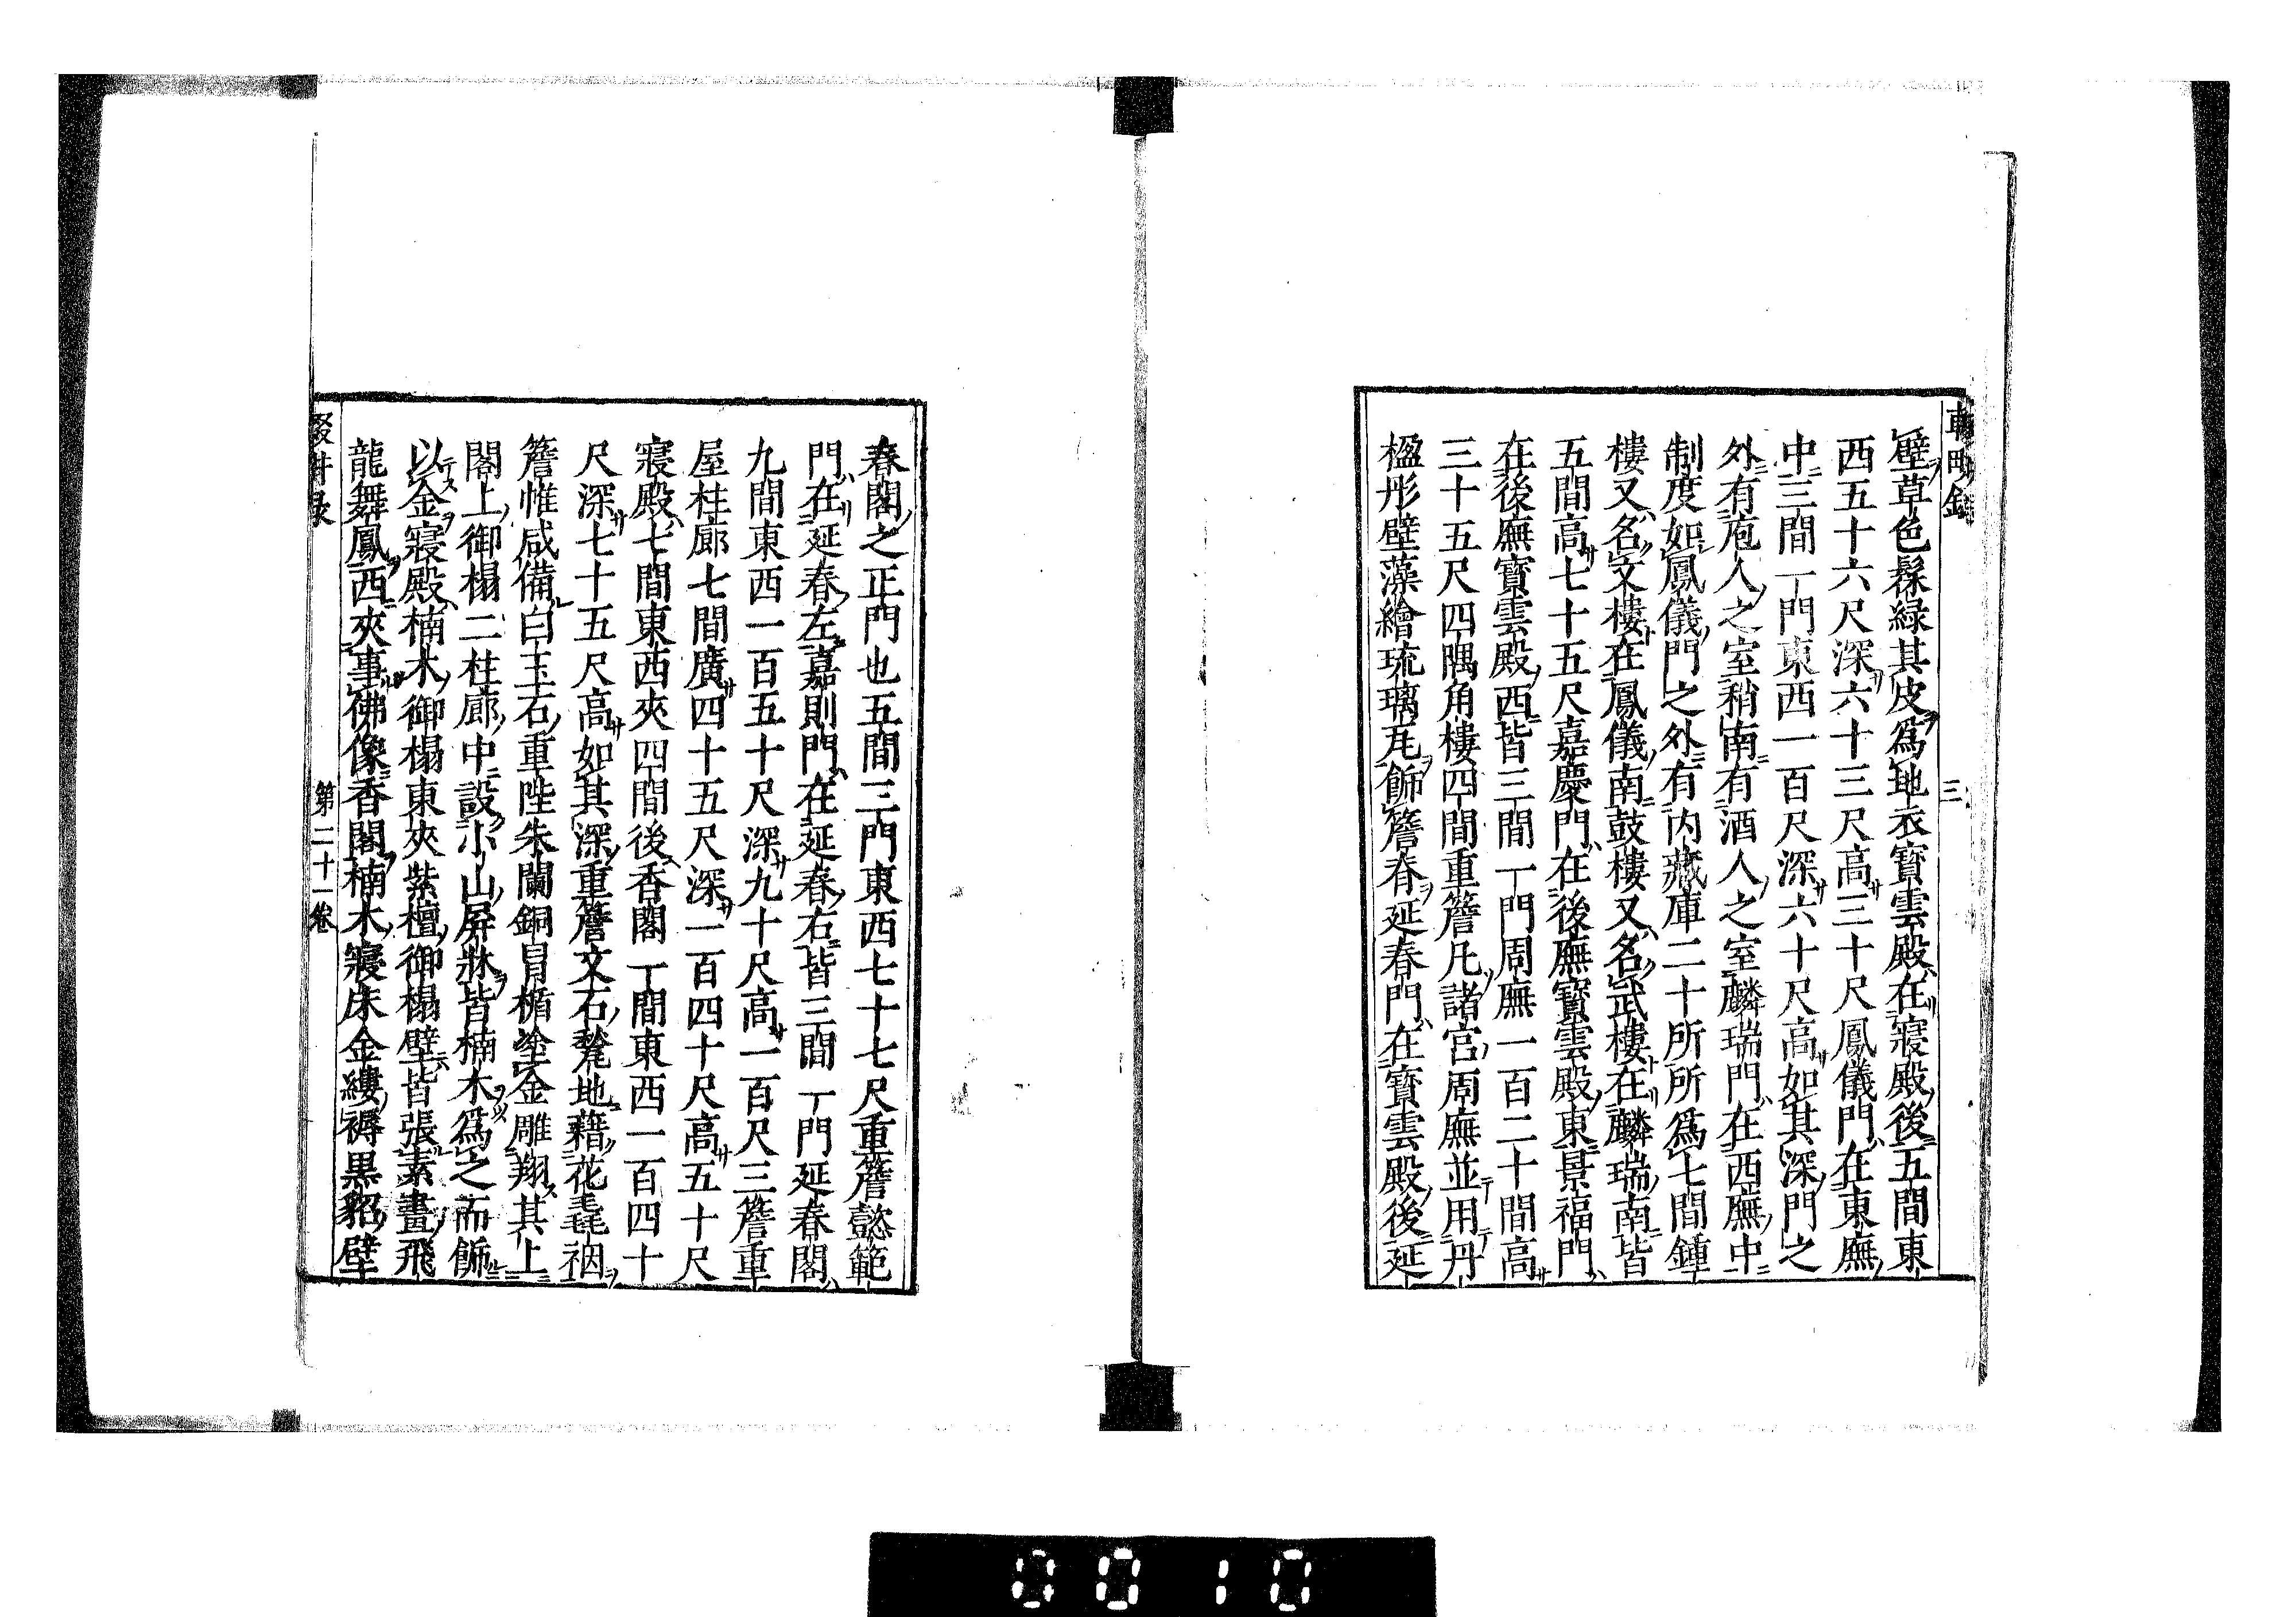 輟畊錄
三
壁草色髹緑其皮爲地衣寳雲殿在寢殿後五間東
西五十六尺深六十三尺高三十尺鳳儀門在東廡
中三間一門東西一百尺深六十尺高如其深門之
外有庖人之室稍南有酒人之室麟瑞門在西廡中
制度如鳳儀門之外有内藏庫二十所所爲七間鍾
樓又名文樓在鳳儀南鼓樓又名武樓在麟瑞南皆
五間高七十五尺嘉慶門在後廡寳雲殿東景福門
在後廡寳雲殿西皆三間一門周廡一百二十間高
三十五尺四隅角樓四間重簷凡諸宮周廡並用丹
楹彤壁藻繪琉璃瓦飾簷春延春門在寳雲殿後延
春閣之正門也五間三門東西七十七尺重簷懿範
門在延春左嘉則門在延春右皆三間一門延春閣
九間東西一百五十尺深九十尺高一百尺三簷重
屋柱廊七間廣四十五尺深一百四十尺高五十尺
寢殿七間東西夾四間後香閣一間東西一百四十
尺深七十五尺高如其深重簷文石甃地藉花毳裀
簷帷咸備白玉石重陛朱闌銅冐楯塗金雕翔其上
閣上御榻二柱廊中設小山屏牀皆楠木爲之而飾
以金寢殿楠木御榻東夾紫檀御榻壁皆張素畫飛
龍舞鳳西夾事佛像香閣楠木寢床金縷褥黒貂壁
輟畊录
第二十一卷
0010